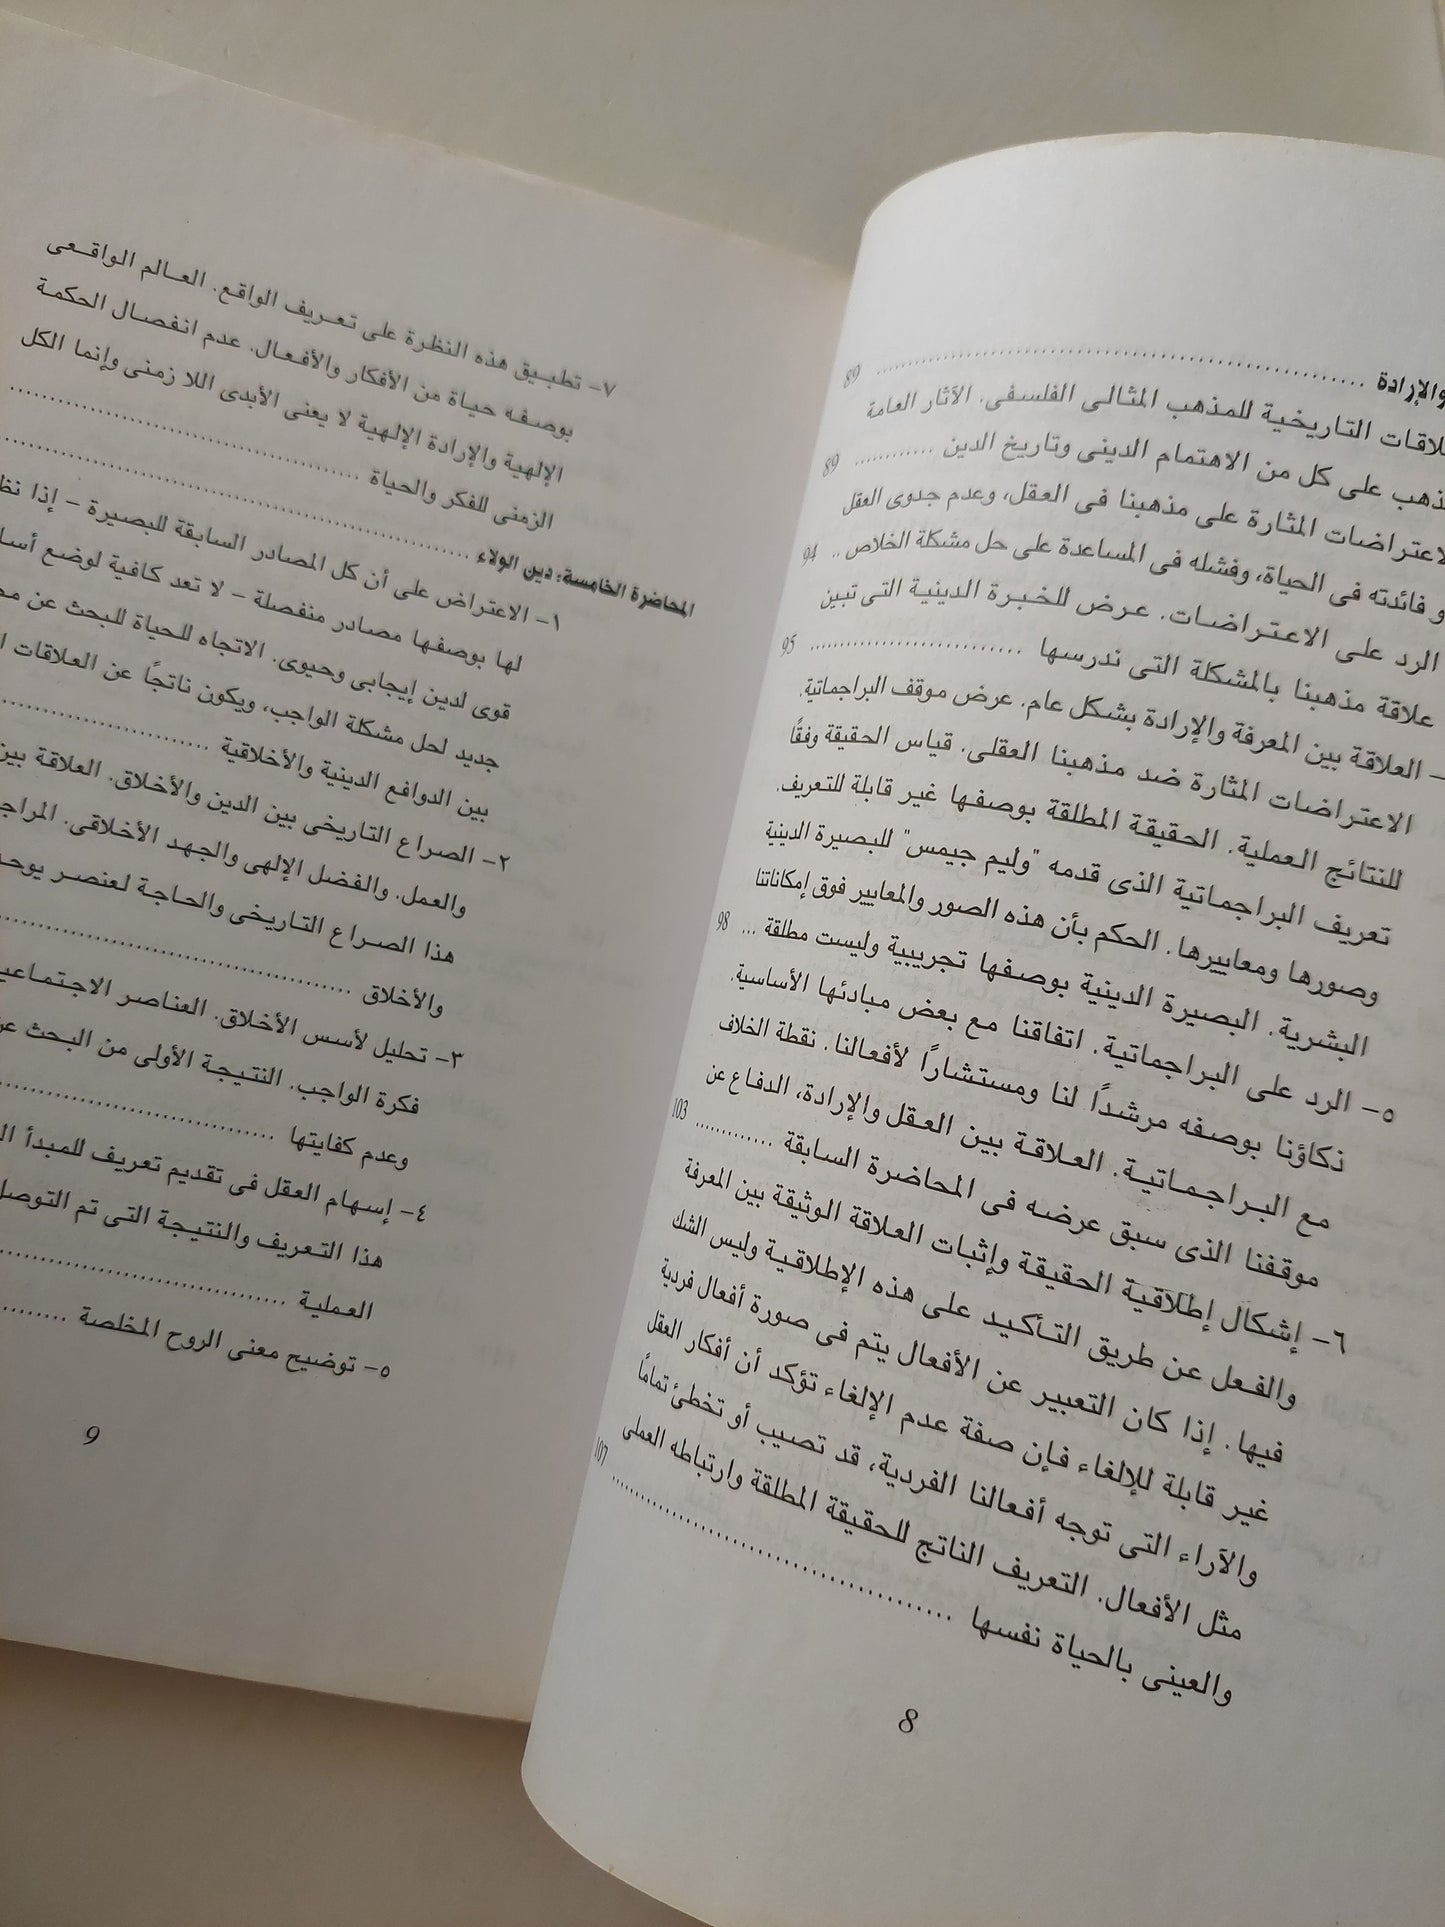 والإرادة ........................................ 89
التاريخية للمذهب المثالى الفلسفى. الآثار العامة
على كل من الاهتمام الدينى وتاريخ الدين ............ 89
المثارة على مذهبنا فى العقل، وعدم جدوى العقل
فائدته فى الحياة، وفشله فى المساعدة على حل مشكلة الخلاص .. 94
الرد على الاعتراضات. عرض للخبرة الدينية التى تبين
علاقة مذهبنا بالمشكلة التى ندرسها ............................ 95
- العلاقة بين المعرفة والإرادة بشكل عام. عرض موقف البراجماتية.
الاعتراضات المثارة ضد مذهبنا العقلى. قياس الحقيقة وفقًا
للنتائج العملية. الحقيقة المطلقة بوصفها غير قابلة للتعريف.
تعريف البراجماتية الذى قدمه "وليم جيمس" للبصيرة الدينية
وصورها ومعاييرها. الحكم بأن هذه الصور والمعايير فوق إمكاناتنا
البشرية. البصيرة الدينية بوصفها تجريبية وليست مطلقة ... 98
٥- الرد على البراجماتية. اتفاقنا مع بعض مبادئها الأساسية.
ذكاؤنا بوصفه مرشداً لنا ومستشاراً لأفعالنا. نقطة الخلاف
مع البراجماتية. العلاقة بين العقل والإرادة، الدفاع عن
موقفنا الذى سبق عرضه فى المحاضرة السابقة ............. 103
٦- إشكال إطلاقية الحقيقة وإثبات العلاقة الوثيقة بين المعرفة
والفعل عن طريق التأكيد على هذه الإطلاقية وليس الشك
فيها. إذا كان التعبير عن الأفعال يتم فى صورة أفعال فردية
غير قابلة للإلغاء فإن صفة عدم الإلغاء تؤكد أن أفكار العقل
والآراء التى توجه أفعالنا الفردية، قد تصيب أو تخطئ تمامًا
مثل الأفعال. التعريف الناتج للحقيقة المطلقة وارتباطه العملى
والعينى بالحياة نفسها ........................................ 107
8
٧- تطبيق هذه النظرة على تعريف الواقع. العالم الواقعى
بوصفه حياة من الأفكار والأفعال. عدم انفصال الحكمة
الإلهية والإرادة الإلهية لا يعنى الأبدى اللا زمنى وإنما الكل
الزمنى للفكر والحياة ........................................
المحاضرة الخامسة: دين الولاء ........................................
١- الاعتراض على أن كل المصادر السابقة للبصيرة – إذا
لها بوصفها مصادر منفصلة – لا تعد كافية لوضع
قوى لدين إيجابى وحيوى. الاتجاه للحياة للبحث عن
جديد لحل مشكلة الواجب، ويكون ناتجًا عن العلاقات
بين الدوافع الدينية والأخلاقية ........................
٢- الصراع التاريخى بين الدين والأخلاق. العلاقة بين
والعمل. والفضل الإلهى والجهد الأخلاقى.
هذا الصراع التاريخى والحاجة لعنصر
والأخلاق ........................................
٣- تحليل لأسس الأخلاق. العناصر
فكرة الواجب. النتيجة الأولى من البحث
وعدم كفايتها ..............................
٤- إسهام العقل فى تقديم تعريف للمبدأ
هذا التعريف والنتيجة التى تم
العملية ..............................
٥- توضيح معنى الروح المخلصة ........
9